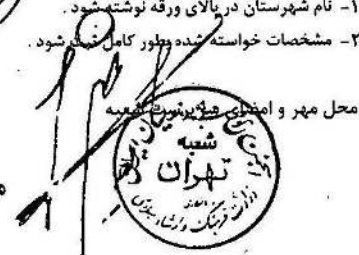 ۱- نام شهرستان در بالای ورقه نوشته شود .
۲- مشخصات خواسته شده بطور کامل قید شود .
محل مهر و امضای سرپرست شعبه
شعبه
تهران
وزارت فرهنگ و ارشاد اسلامی